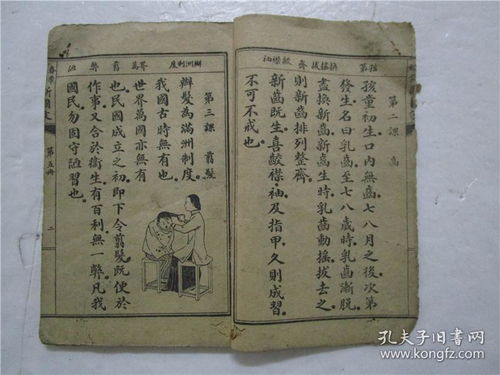 孩第 換搖拔 齊 齩襟袖
第二課 齒
孩童初生口內無齒。七八月之後次第
發生。名曰乳齒。至七八歲時。乳齒漸脫。
盡換新齒。新齒生時。乳齒動搖。拔去之。
則新齒排列整齊。
新齒既生。喜齩襟袖及指甲。久則成習。
不可不戒也。
辮洲制度 界萬 弊 陋
第三課 剪髮
辮髮爲滿洲制度。
我國古時無有也。
世界萬國亦無有
也。民國成立之初。即下令剪髮。既便於
作事。又合於衛生。有百利無一弊。凡我
國民。勿固守陋習也。
新國文 第五冊 二
孔夫子旧书网
www.kongfz.com